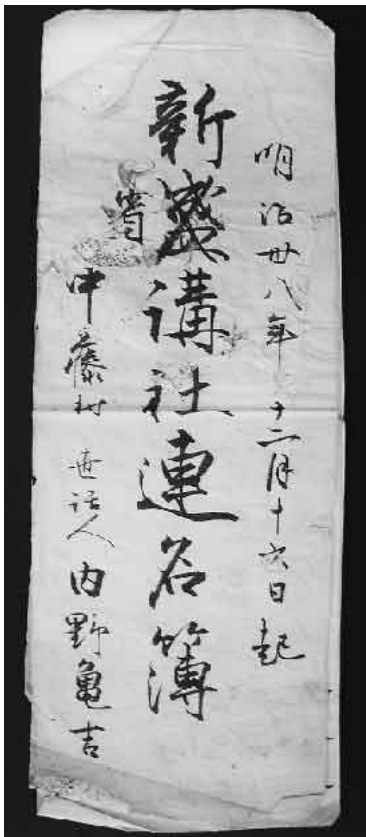 明治廿八年十二月十六日起
新盛講社連名簿
中藤村 世話人 内野亀吉